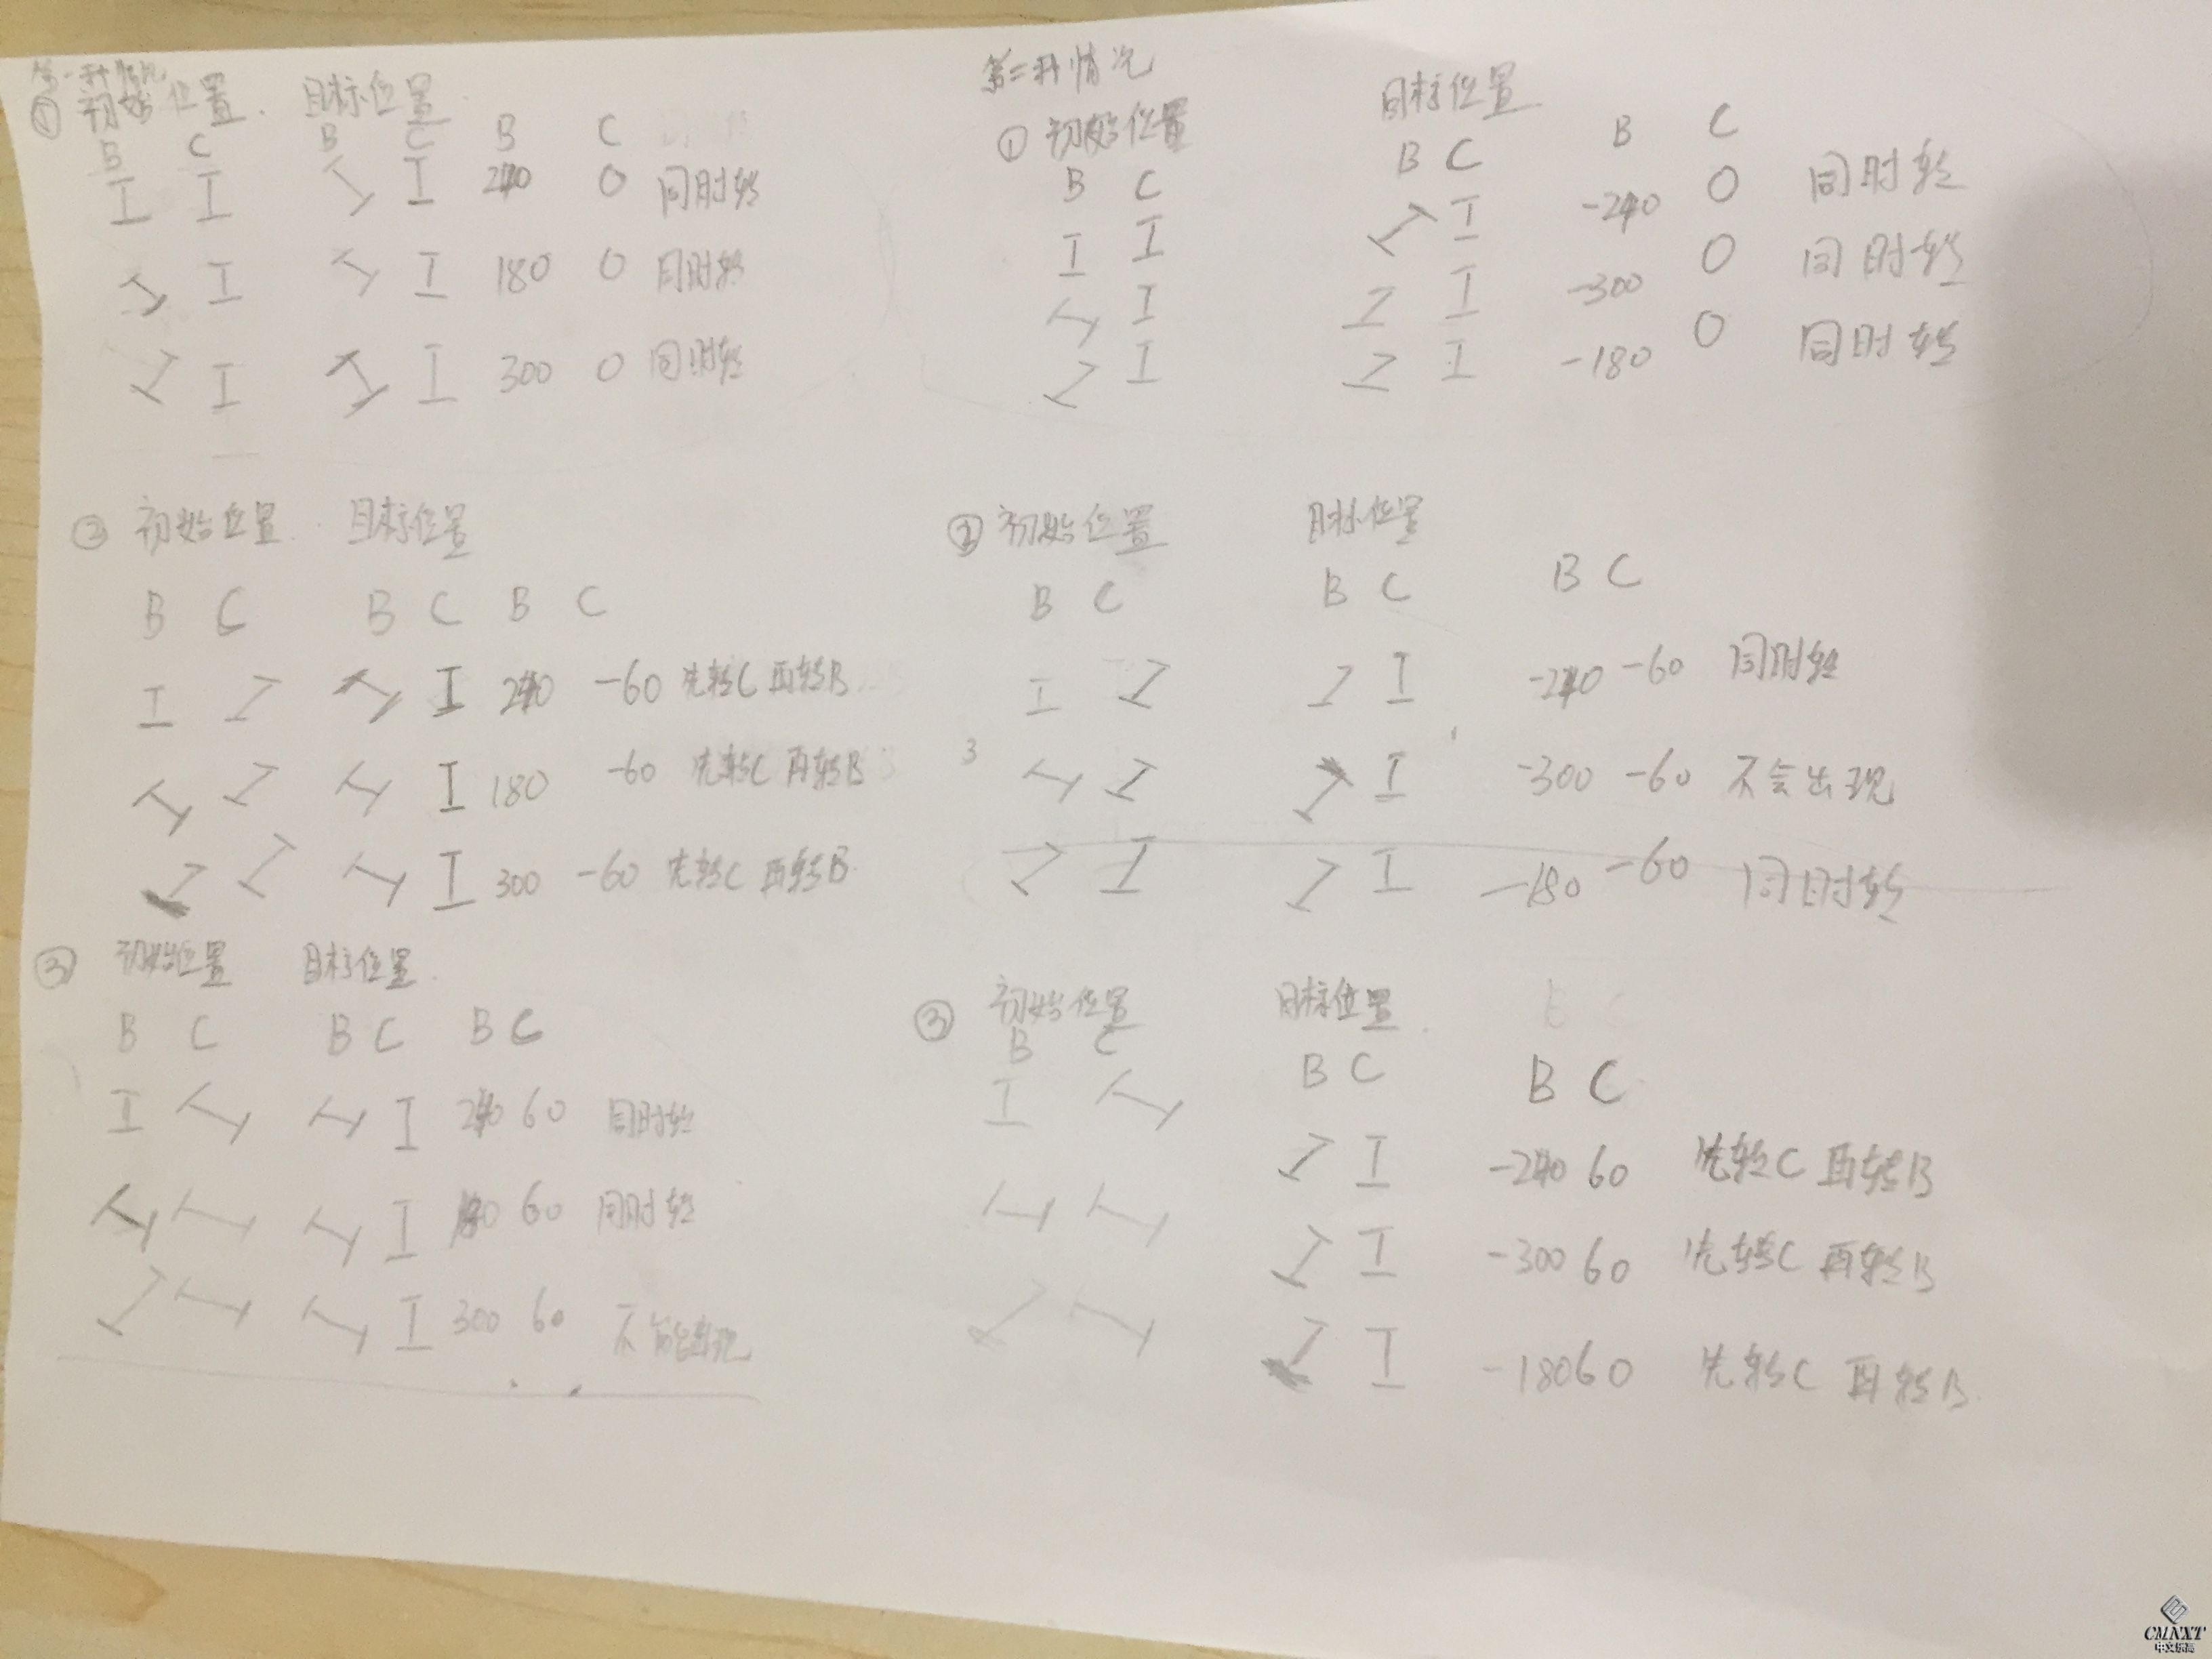 第一种情况
① 初始位置 目标位置
B C B C B C
I I I I 240 0 同时转
I I I I 180 0 同时转
I I I I 300 0 同时转
② 初始位置 目标位置
B C B C B C
I I I I 240 -60 先转C再转B
I I I I 180 -60 先转C再转B
I I I I 300 -60 先转C再转B
③ 初始位置 目标位置
B C B C B C
I I I I 240 60 同时转
I I I I 180 60 同时转
I I I I 300 60 不能出现
第二种情况
① 初始位置 目标位置
B C B C B C
I I I I -240 0 同时转
I I I I -300 0 同时转
I I I I -180 0 同时转
② 初始位置 目标位置
B C B C B C
I I I I -240 -60 同时转
3 I I I I -300 -60 不会出现
I I I I -180 -60 同时转
③ 初始位置 目标位置
B C B C B C
I I I I -240 60 先转C再转B
I I I I -300 60 先转C再转B
I I I I -180 60 先转C再转B
CMNXT
中文乐高